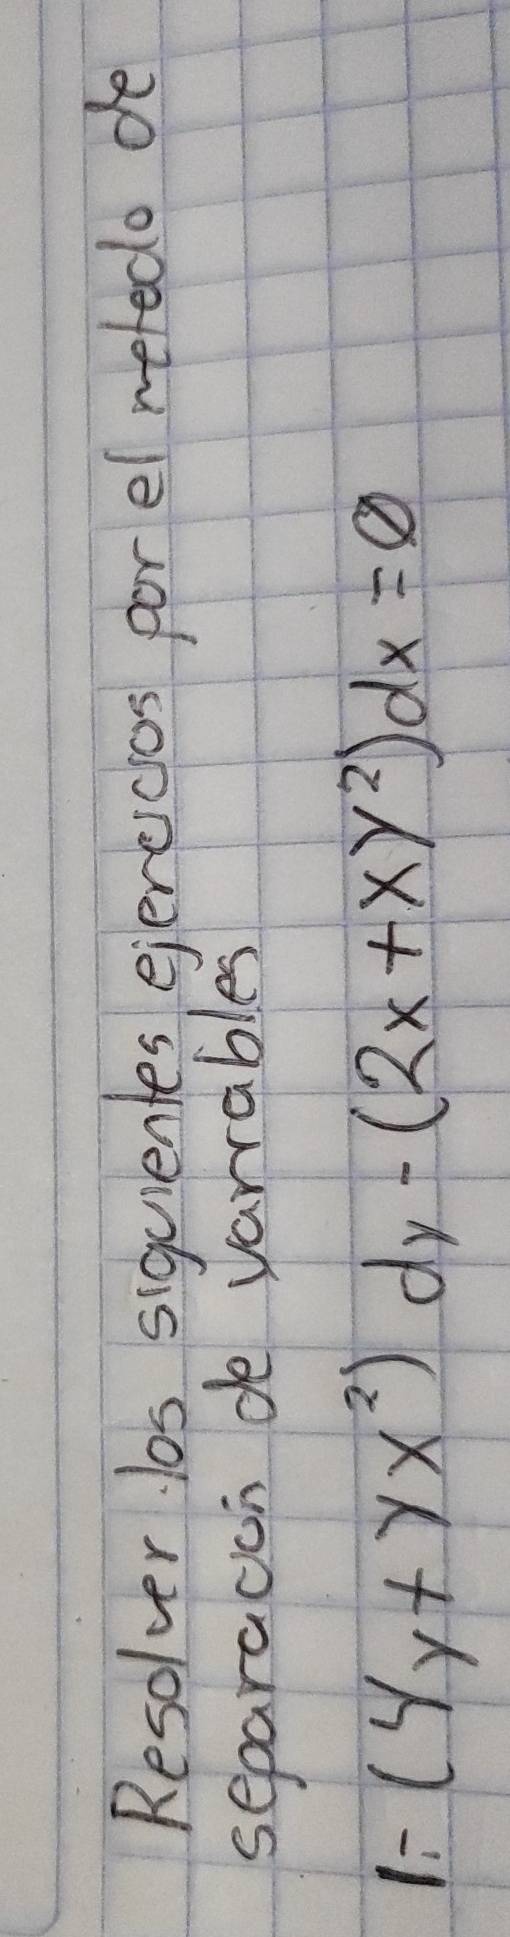 Resolver los siguientes ejercicios por el metedo de
separación de variables
1.- (4y + yx²) dy - (2x + xy²)dx = 0